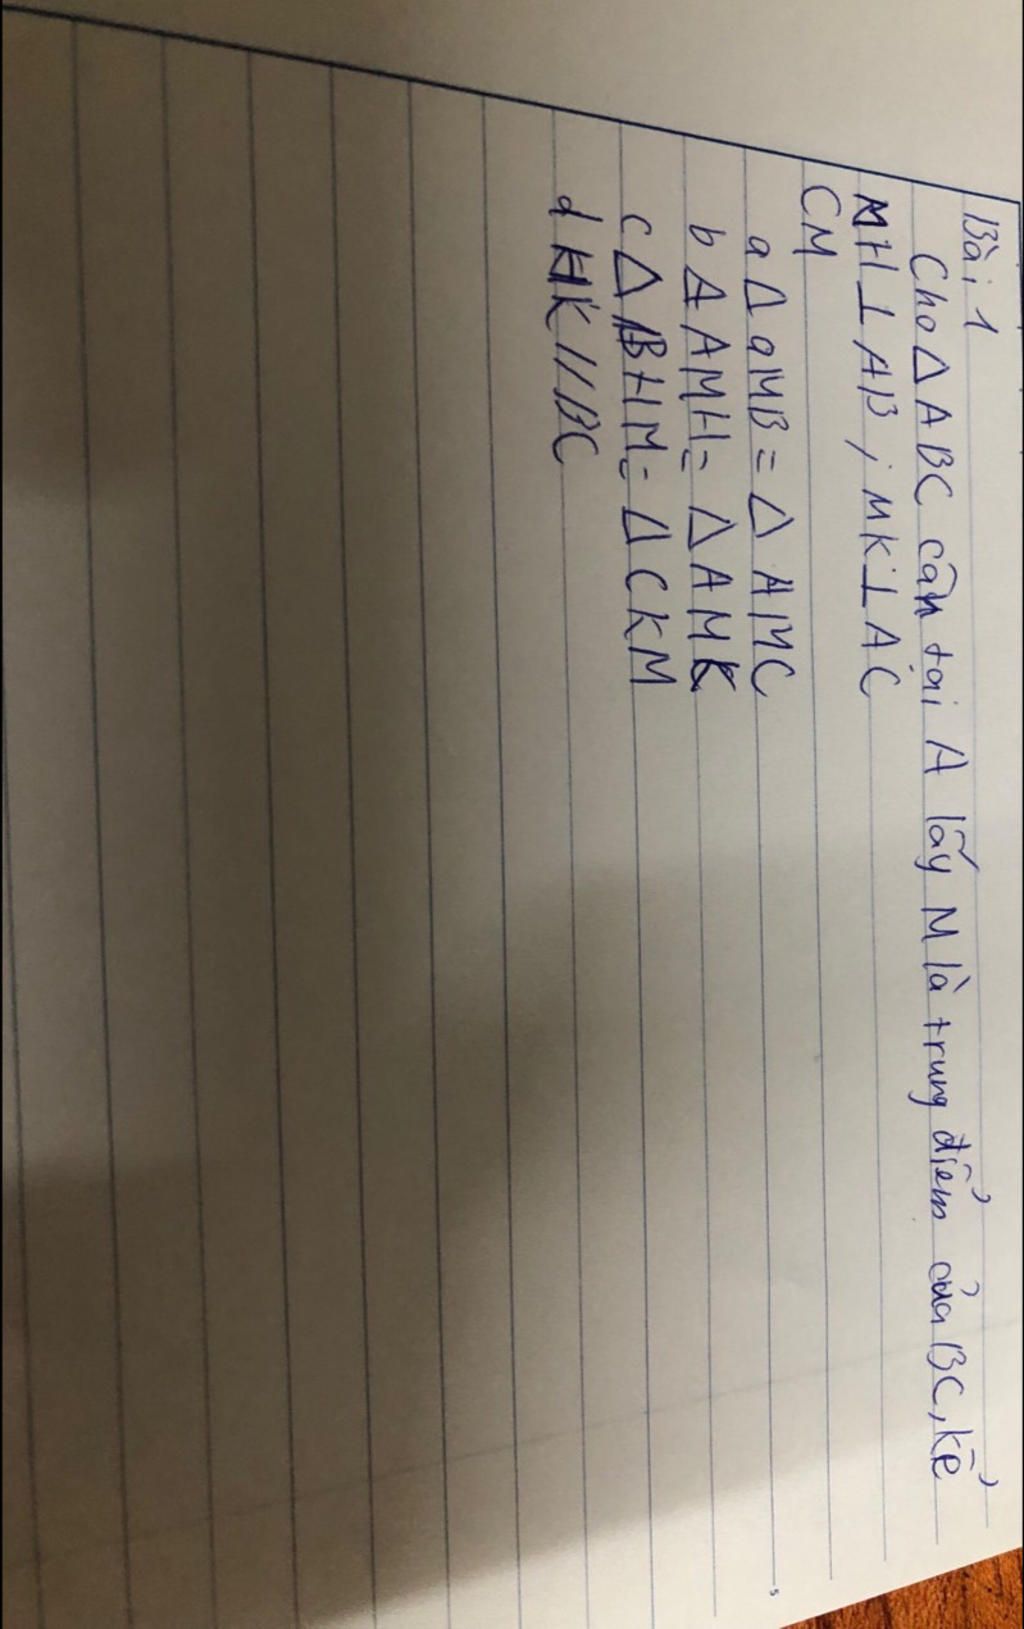 Bài 1
Cho △ ABC cân tại A lấy M là trung điểm của BC, kẻ
MH ⊥ AB ; MK ⊥ AC
CM
a △ aMB = △ AMC
b △ AMH = △ AMK
c △ BHM = △ CKM
d HK // BC
5